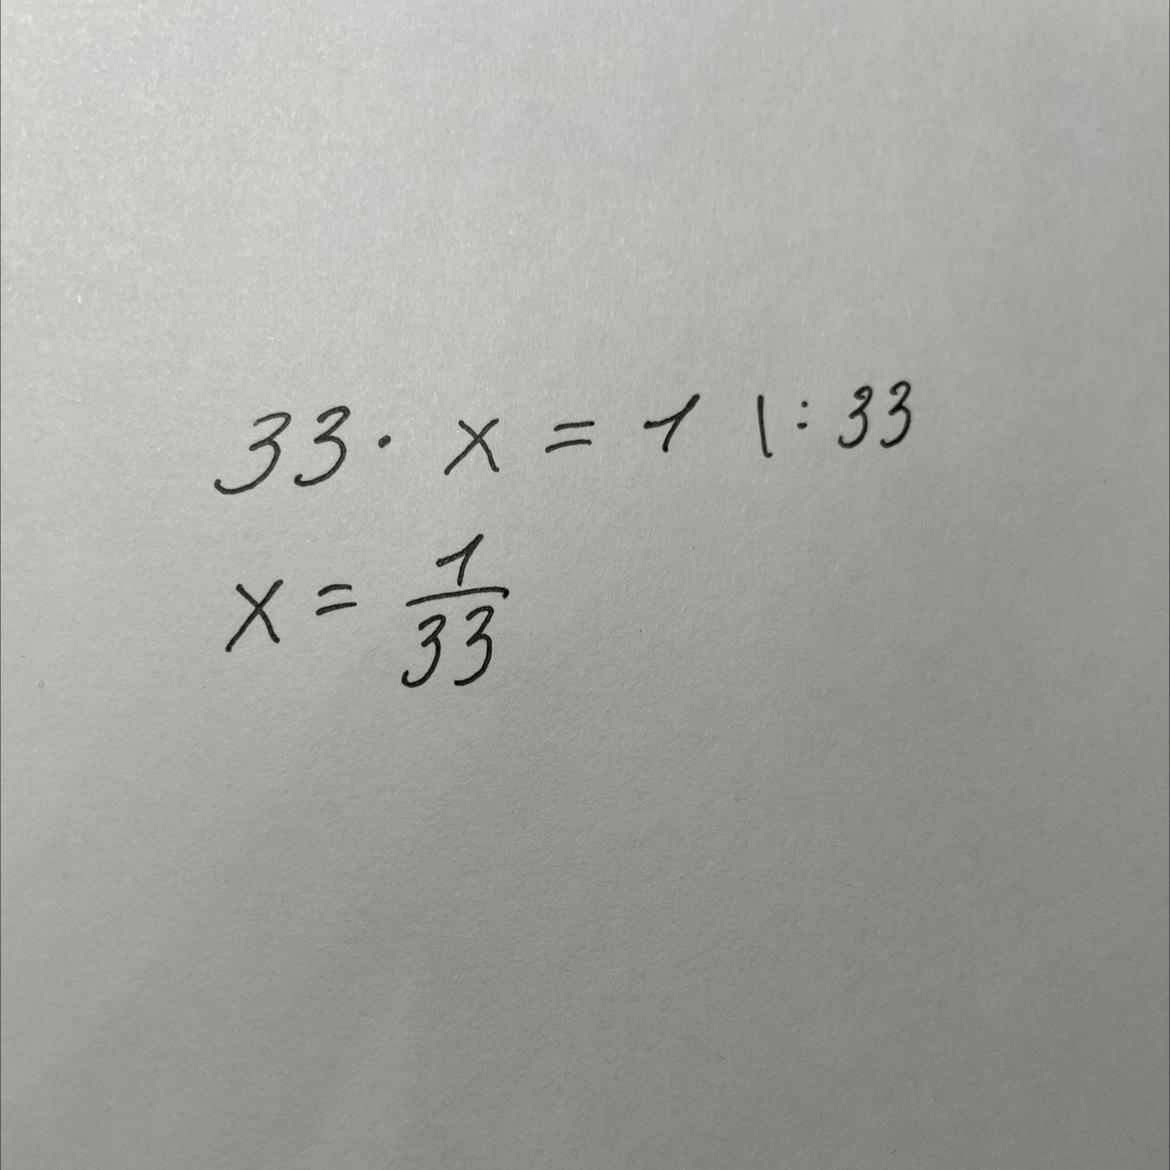 33 · x = 1 | : 33
x = 1/33